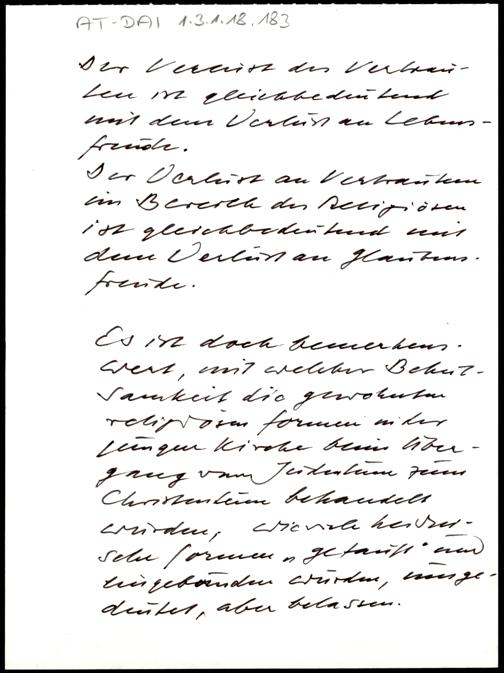 AT-DAI 1.3.1.18.183
Der Verlust des Vertrau-
ten ist gleichbedeutend
mit dem Verlust an Lebens-
freude.
Der Verlust an Vertrautem
im Bereich des Religiösen
ist gleichbedeutend mit
dem Verlust an Glaubens-
freude.
Es ist doch bemerkens-
wert, mit welcher Behut-
samkeit die gewohnten
religiösen Formen in der
jungen Kirche beim Über-
gang vom Judentum zum
Christentum behandelt
wurden, wieviele heidni-
sche Formen „getauft“ und
eingebunden wurden, umge-
deutet, aber belassen.